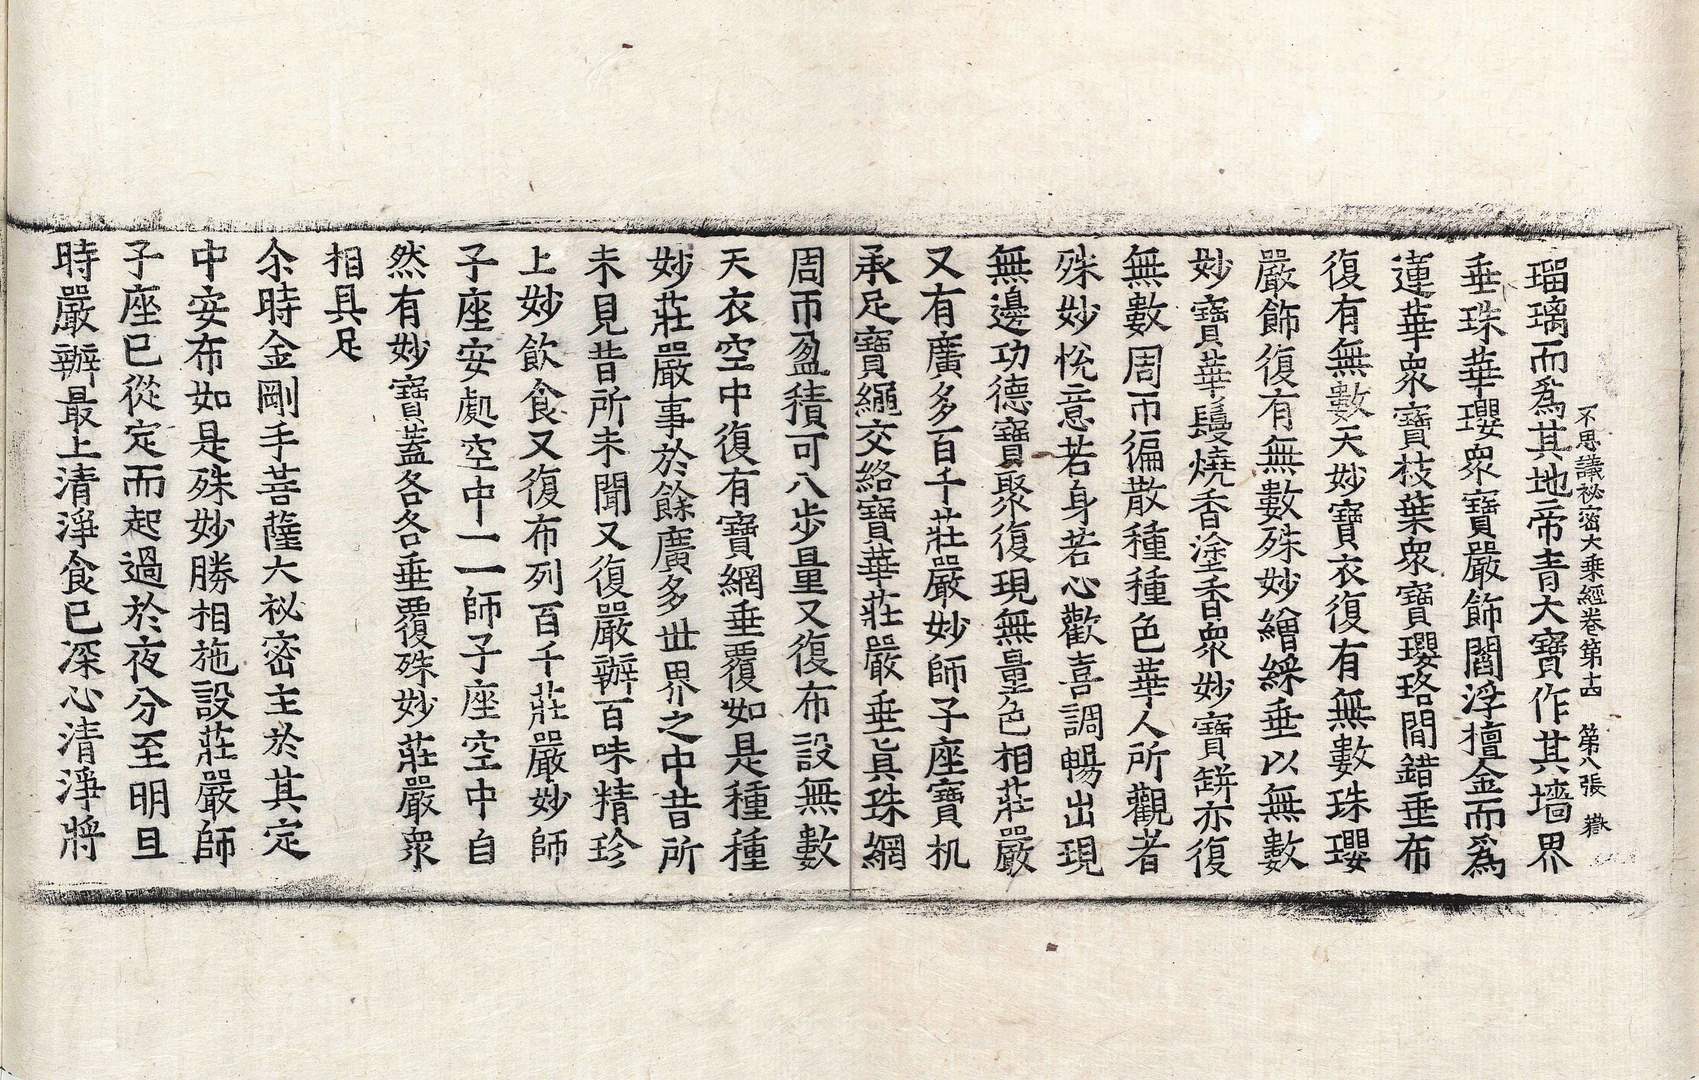 不思議祕密大乘經卷第十四　第八張　嶽
瑠璃而爲其地帝青大寶作其墻界
垂珠華瓔衆寶嚴飾閻浮檀金而爲
蓮華衆寶枝葉衆寶瓔珞間錯垂布
復有無數天妙寶衣復有無數珠瓔
嚴飾復有無數殊妙繒綵垂以無數
妙寶華鬘燒香塗香衆妙寶缾亦復
無數周帀徧散種種色華人所觀者
殊妙悅意若身若心歡喜調暢出現
無邊功德寶聚復現無量色相莊嚴
又有廣多百千莊嚴妙師子座寶机
承足寶繩交絡寶華莊嚴垂眞珠網
周帀盈積可八步量又復布設無數
天衣空中復有寶網垂覆如是種種
妙莊嚴事於餘廣多世界之中昔所
未見昔所未聞又復嚴辦百味精珍
上妙飮食又復布列百千莊嚴妙師
子座安處空中一一師子座空中自
然有妙寶蓋各各垂覆殊妙莊嚴衆
相具足
尒時金剛手菩薩大祕密主於其定
中安布如是殊妙勝相施設莊嚴師
子座已從定而起過於夜分至明旦
時嚴辦最上清淨食已深心清淨將